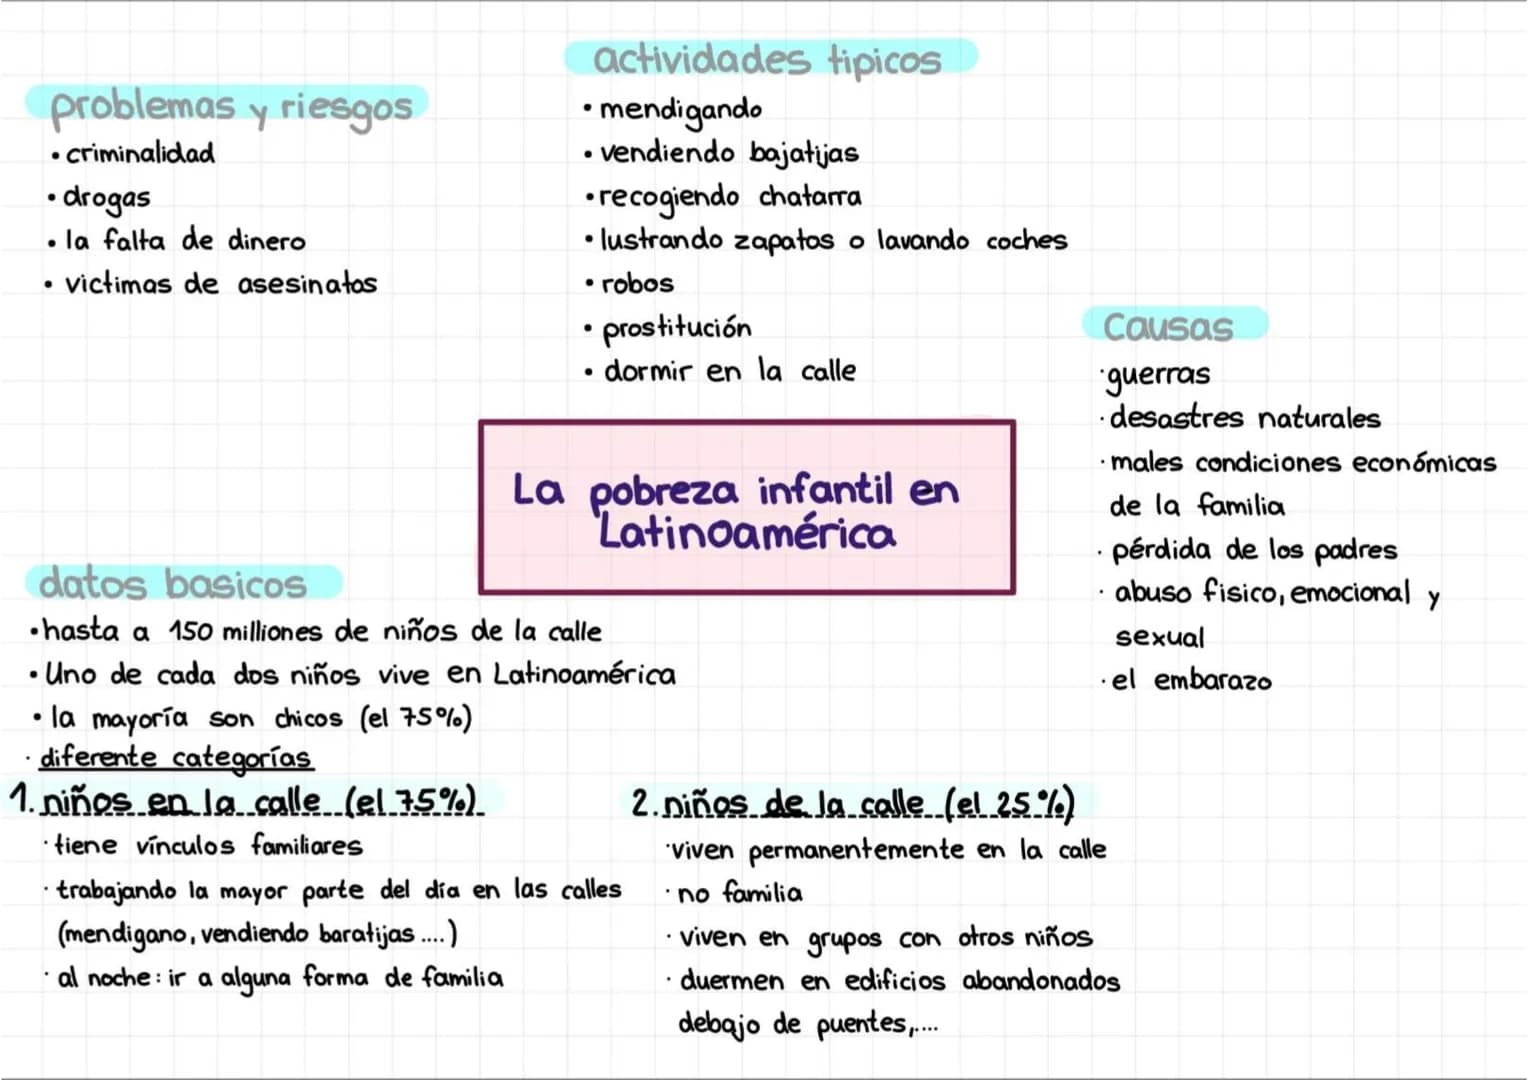 actividades tipicos
• mendigando
• vendiendo bajatijas
• recogiendo chatarra
• lustrando zapatos o lavando coches
• robos
• prostitución
• dormir en la calle
problemas y riesgos
• criminalidad
• drogas
• la falta de dinero
• victimas de asesinatos
Causas
· guerras
· desastres naturales
· males condiciones económicas
de la familia
· pérdida de los padres
· abuso fisico, emocional y
sexual
· el embarazo
La pobreza infantil en
Latinoamérica
datos basicos
• hasta a 150 milliones de niños de la calle
• Uno de cada dos niños vive en Latinoamérica
• la mayoría son chicos (el 75%)
· diferente categorías
1. niños en la calle (el 75%)
· tiene vínculos familiares
· trabajando la mayor parte del día en las calles
(mendigano, vendiendo baratijas ....)
· al noche: ir a alguna forma de familia
2. niños de la calle (el 25%)
· viven permanentemente en la calle
· no familia
· viven en grupos con otros niños
· duermen en edificios abandonados
debajo de puentes,....